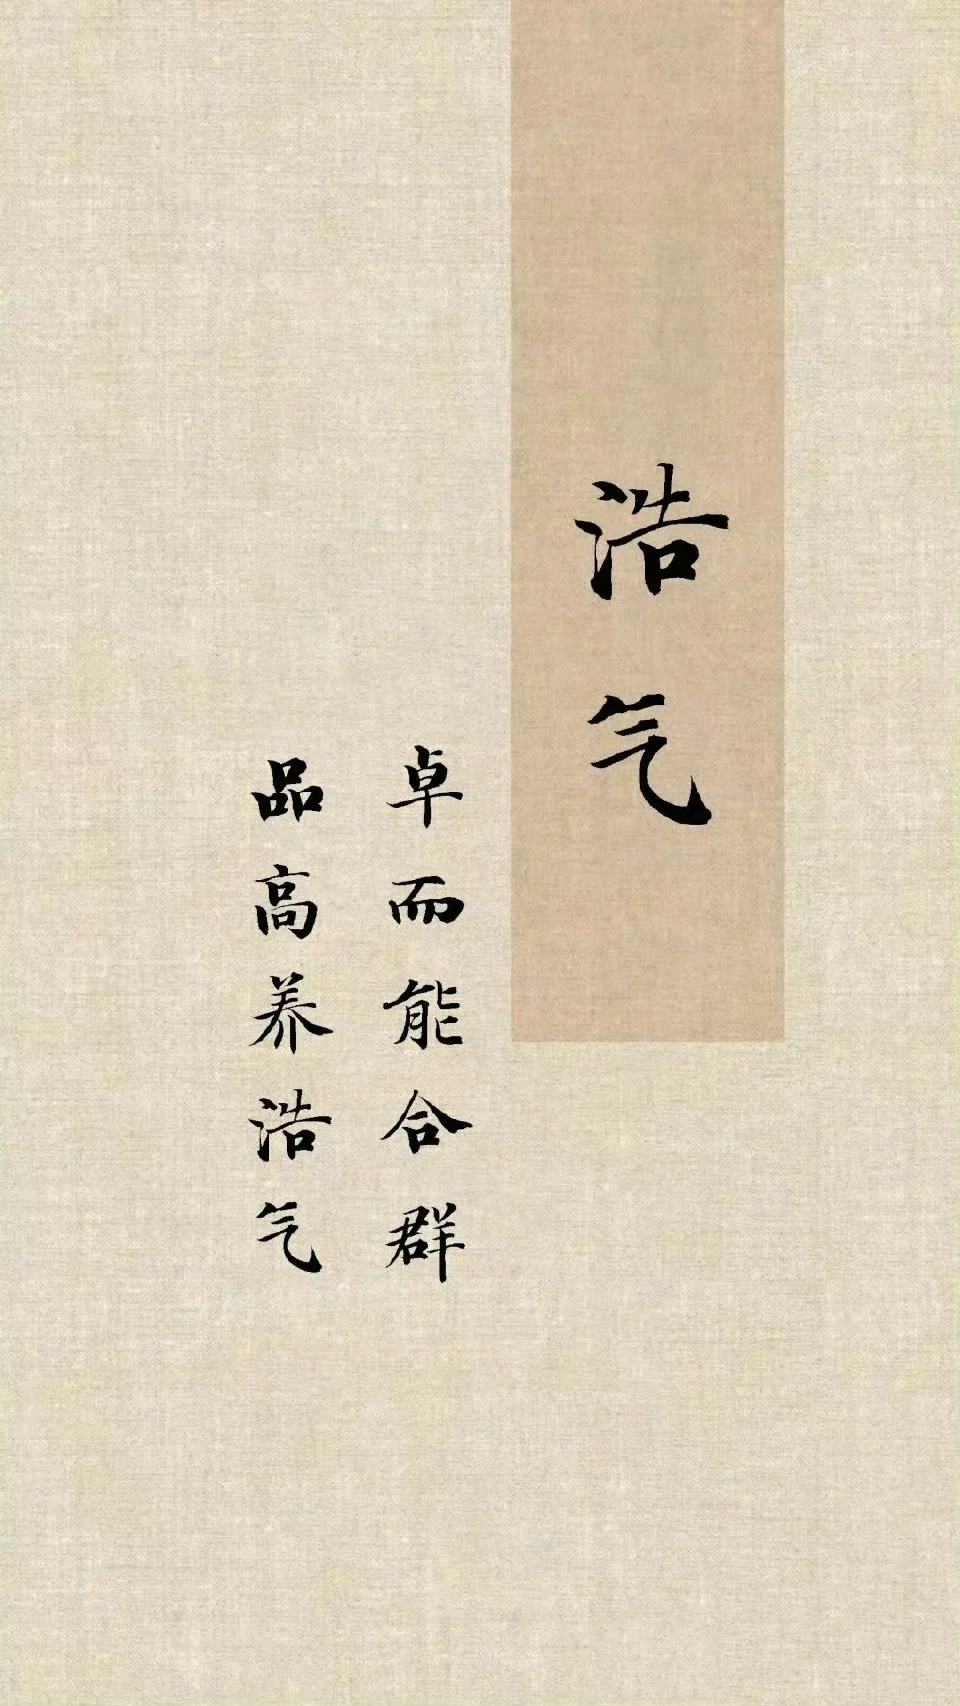 浩气
卓而能合群
品高养浩气